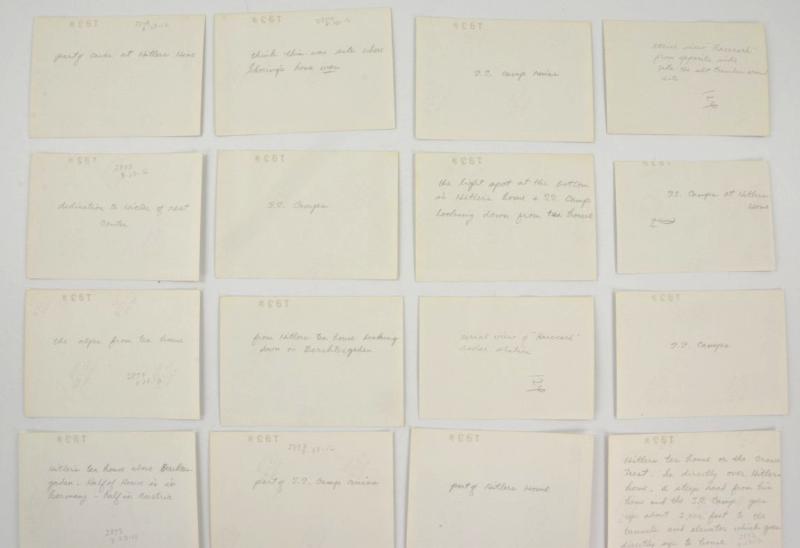 party cars at Hitlers Home
think this was site where
Göring's home was
S.S. Camp ruins
aerial view "Harvard"
from opposite side
site
dedication to
center
S.S. Camps
the light spot at the bottom
is Hitlers home & S.S. Camp
looking down from tea house
S.S. Camps at Hitlers
Home
the alps from tea house
from Hitlers tea house looking
down on Berchtesgaden
aerial view of "Harvard"
radar station
S.S. Camps
Hitlers tea house above Berchtes-
gaden - Half of House is in
Germany - half in Austria
part of S.S. Camp ruins
part of Hitlers Home
Hitlers tea house or the Crows
Nest - he directly over Hitlers
home. A steep road from his
home and the S.S. Camp goes
up about 2,000 feet to the
tunnels and elevator which goes
directly up to house